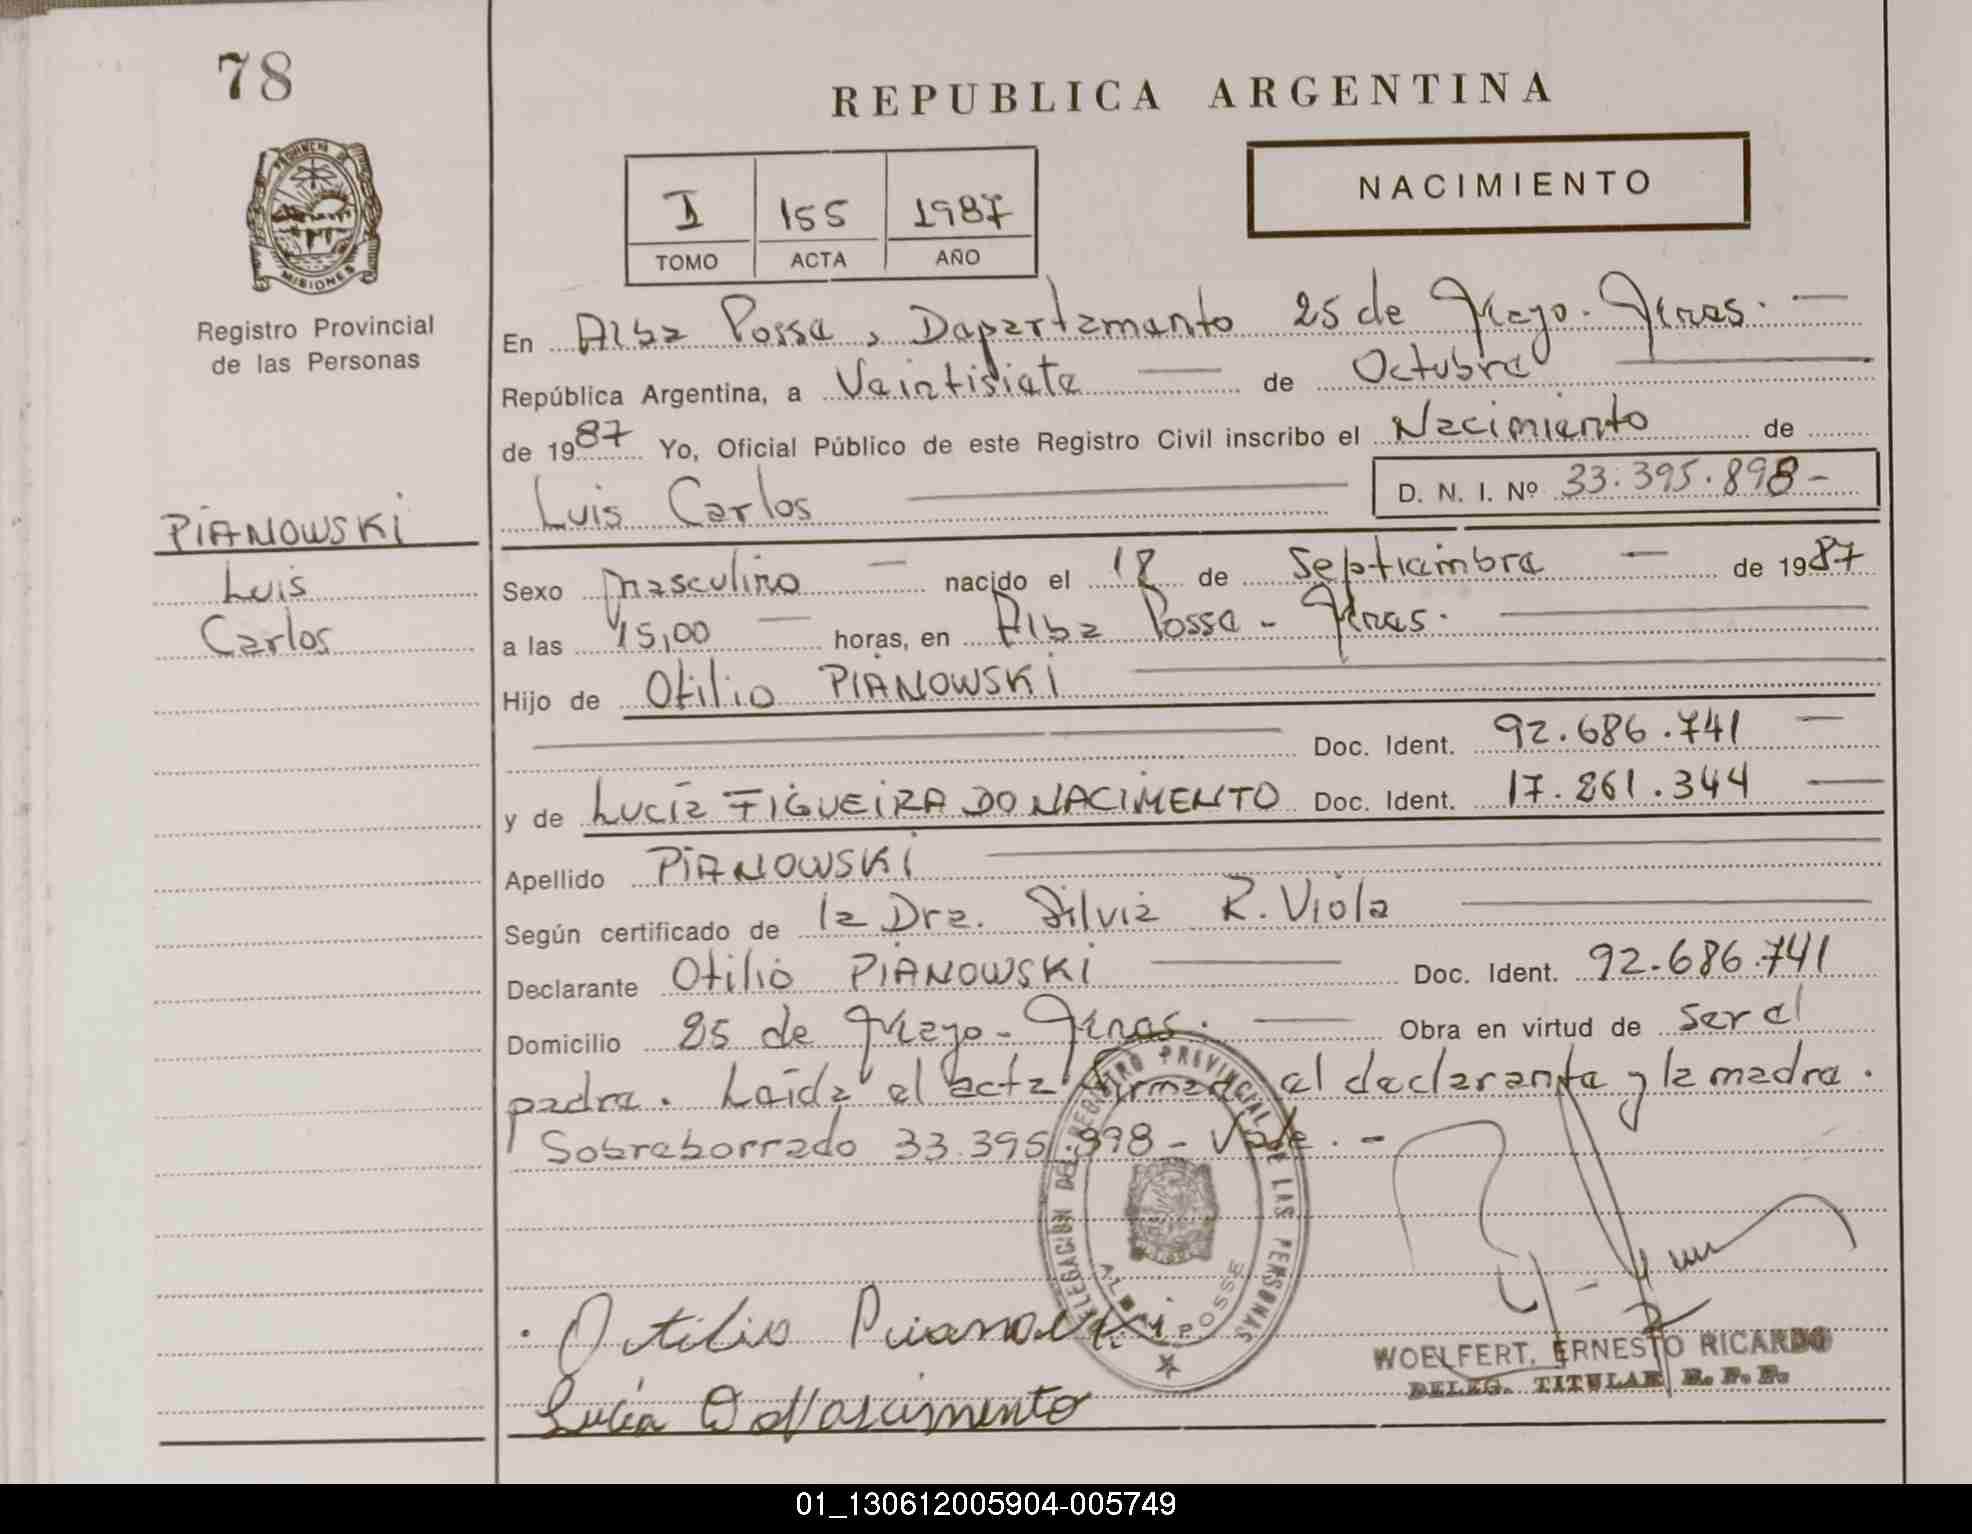 78
REPUBLICA ARGENTINA
PROVINCIA DE
MISIONES
Registro Provincial
de las Personas
I 155 1987
TOMO ACTA AÑO
NACIMIENTO
En Alba Posse, Departamento 25 de Mayo. Mnes. —
República Argentina, a Veintisiete — de Octubre —
de 1987 Yo, Oficial Público de este Registro Civil inscribo el Nacimiento de
Luis Carlos — D. N. I. Nº 33.395.898-
PIANOWSKI
Luis
Carlos
Sexo masculino — nacido el 18 de Septiembre — de 1987
a las 15,00 — horas, en Alba Posse - Mnes. —
Hijo de Otilio PIANOWSKI —
— Doc. Ident. 92.686.741 —
y de Lucía FIGUEIRA DO NACIMENTO Doc. Ident. 17.861.344 —
Apellido PIANOWSKI —
Según certificado de la Dra. Silvia R. Viola —
Declarante Otilio PIANOWSKI — Doc. Ident. 92.686.741
Domicilio 25 de Mayo - Mnes. — Obra en virtud de ser el
padre. Leída el acta firman el declarante y la madre.
Sobreborrado 33.395.898 - Vale. -
DELEGACION DEL REGISTRO PROVINCIAL DE LAS PERSONAS
ALBA POSSE
Otilio Pianowski
Lucia Do Nascimento
WOELFERT, ERNESTO RICARDO
DELEG. TITULAR R. P. P.
01_130612005904-005749